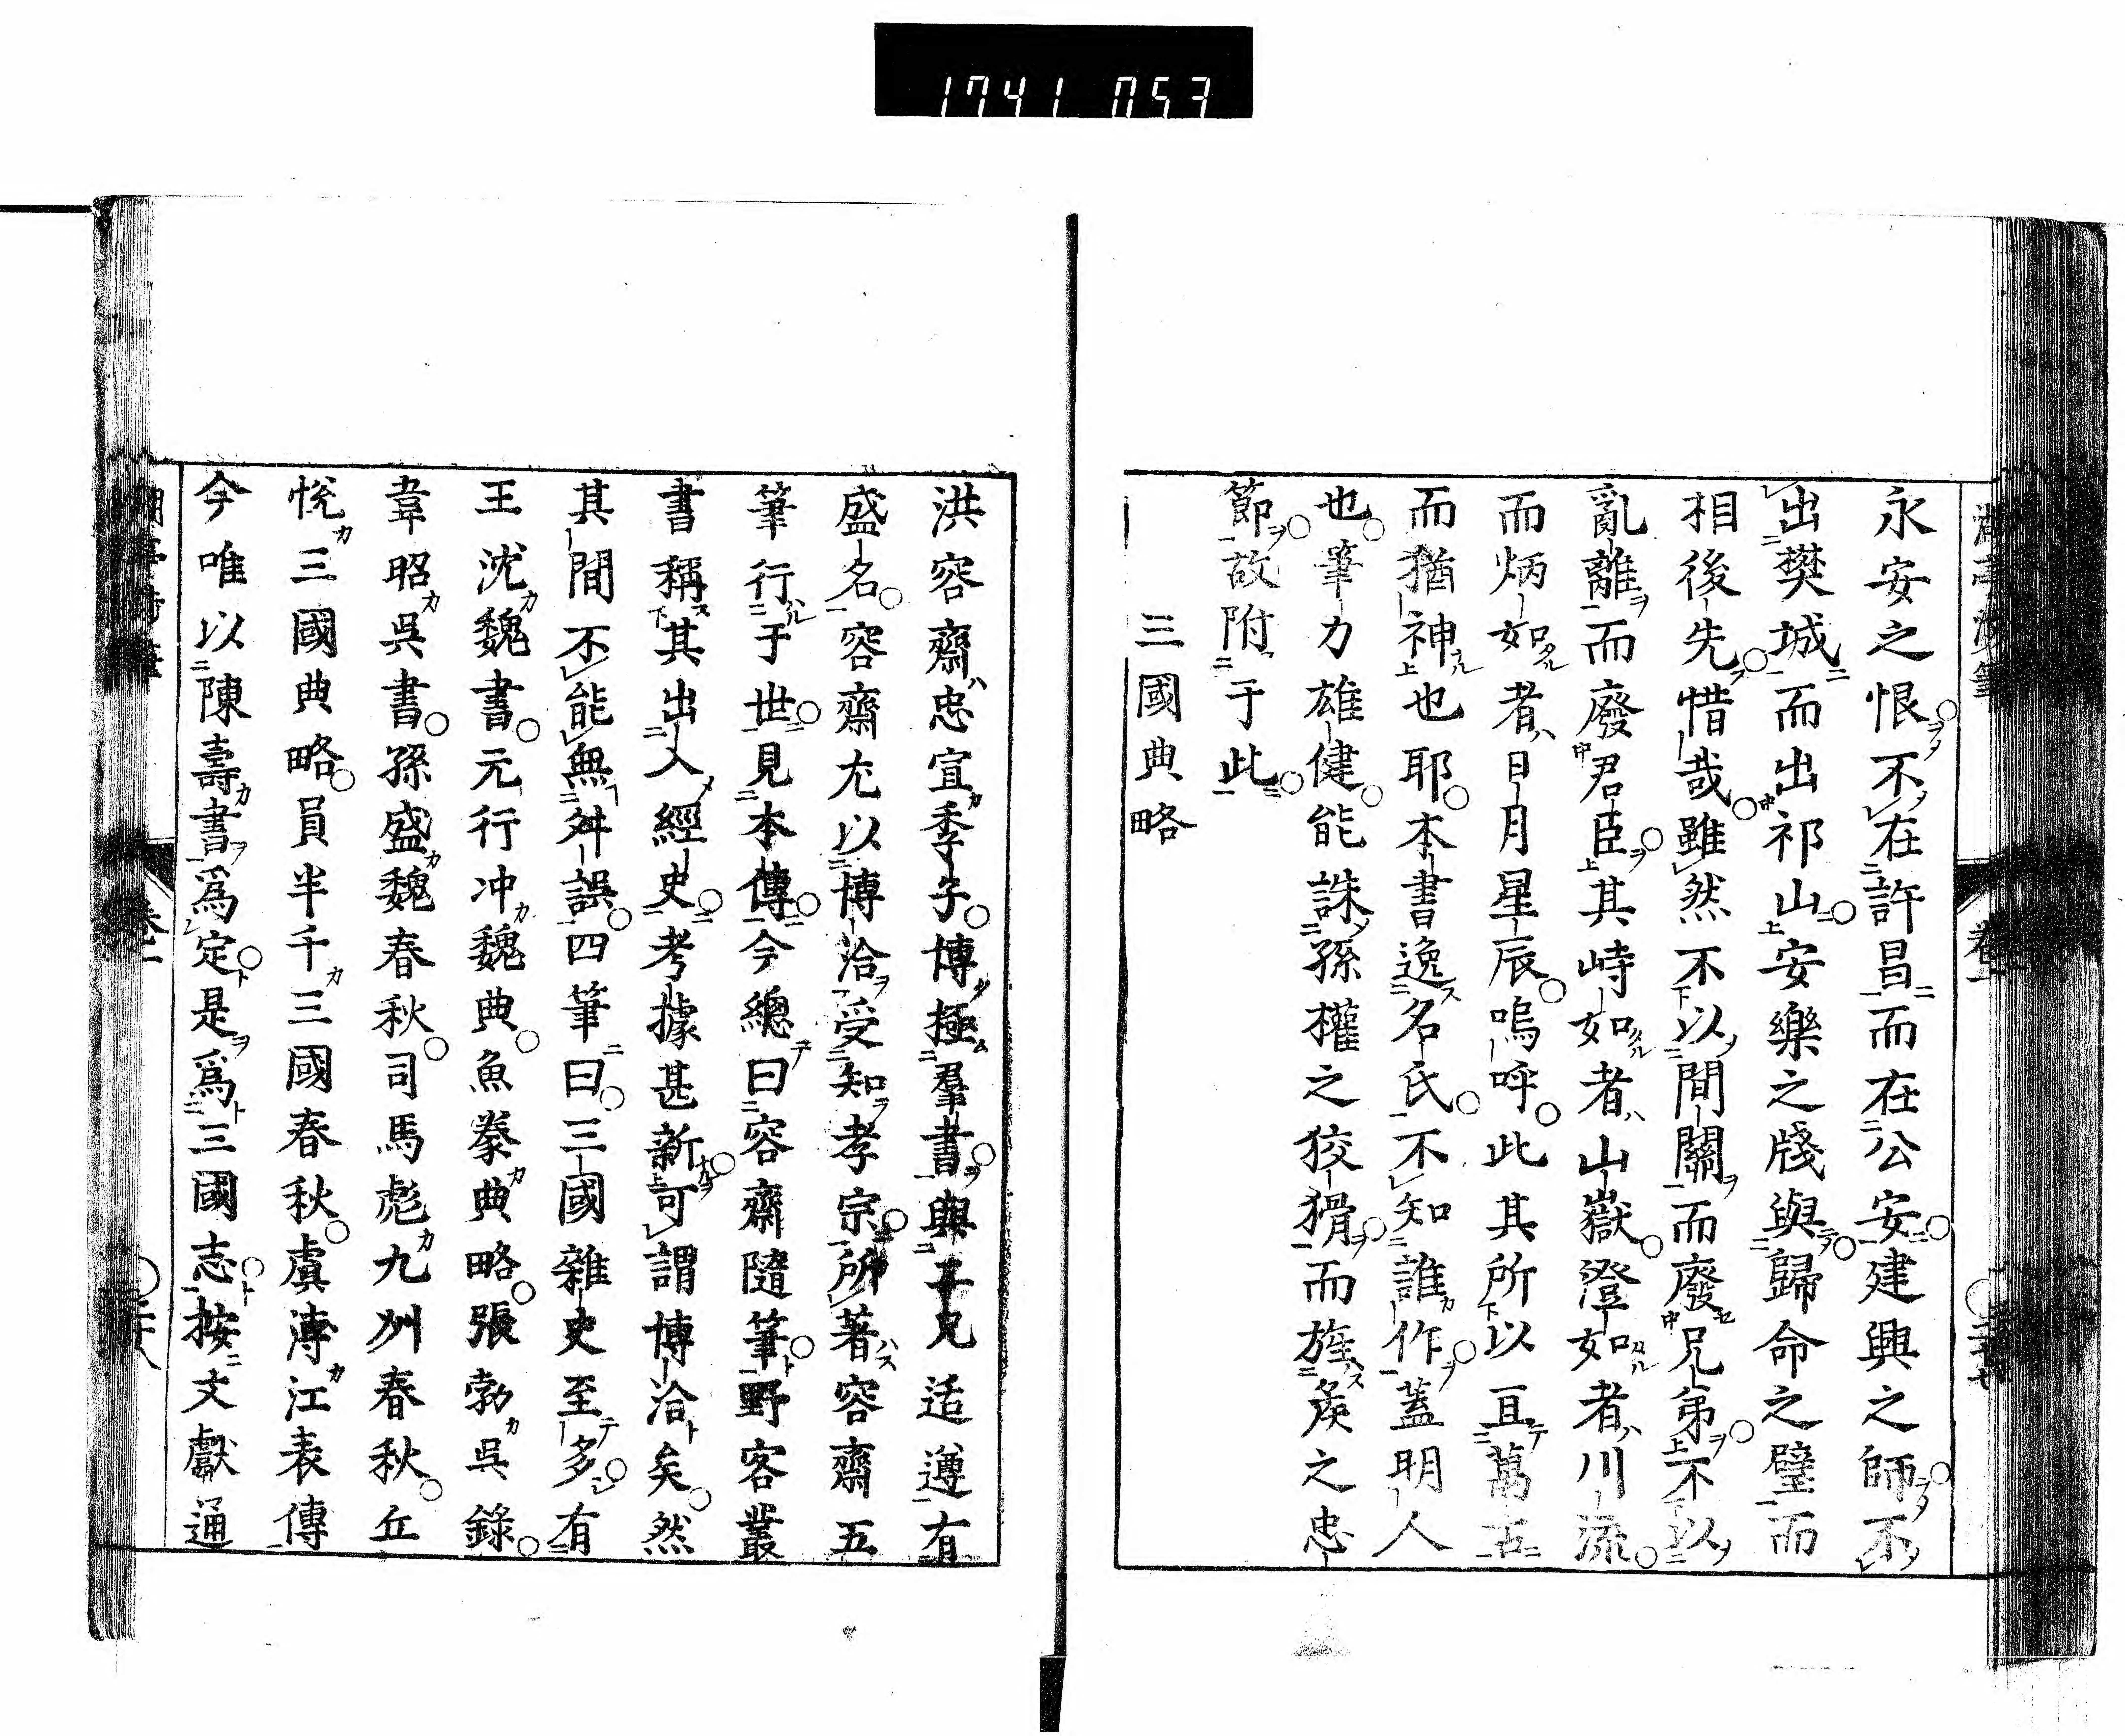 1741 053
永安之恨不在許昌而在公安建興之師不
出樊城而出祁山安樂之牋與歸命之璧而
相後先惜哉雖然不以間關而廢兄弟不以
亂離而廢君臣其峙如者山嶽澄如者川流
而炳如者日月星辰嗚呼此其所以亘萬古
而猶神也耶本書逸名氏不知誰作蓋明人
也筆力雄健能誅孫權之狡猾而旌矦之忠
節故附于此
三國典略
洪容齋忠宣季子博極羣書與其兄适遵有
盛名容齋尤以博洽受知孝宗所著容齋五
筆行于世見本傳今總曰容齋隨筆野客叢
書稱其出入經史考據甚新可謂博洽矣然
其間不能無舛誤四筆曰三國雜史至多有
王沈魏書元行冲魏典魚豢典略張勃吳錄
韋昭吳書孫盛魏春秋司馬彪九州春秋丘
悅三國典略員半千三國春秋虞溥江表傳
今唯以陳壽書爲定是爲三國志按文獻通